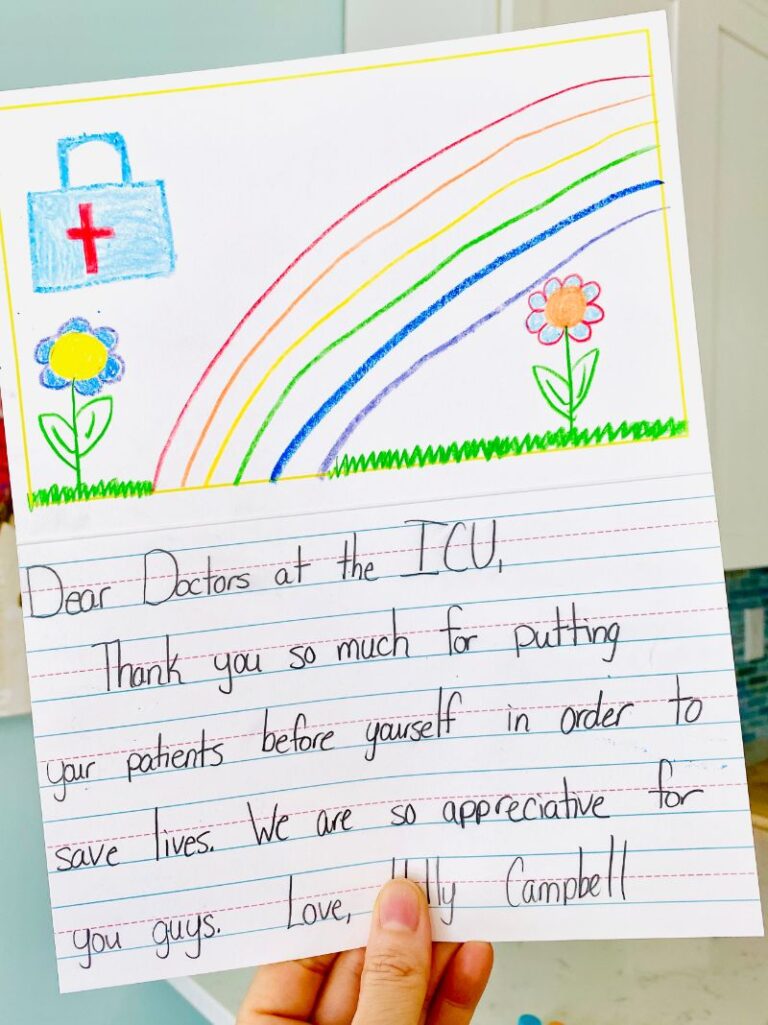 Dear Doctors at the ICU,
Thank you so much for putting
your patients before yourself in order to
save lives. We are so appreciative for
you guys. Love, Campbell